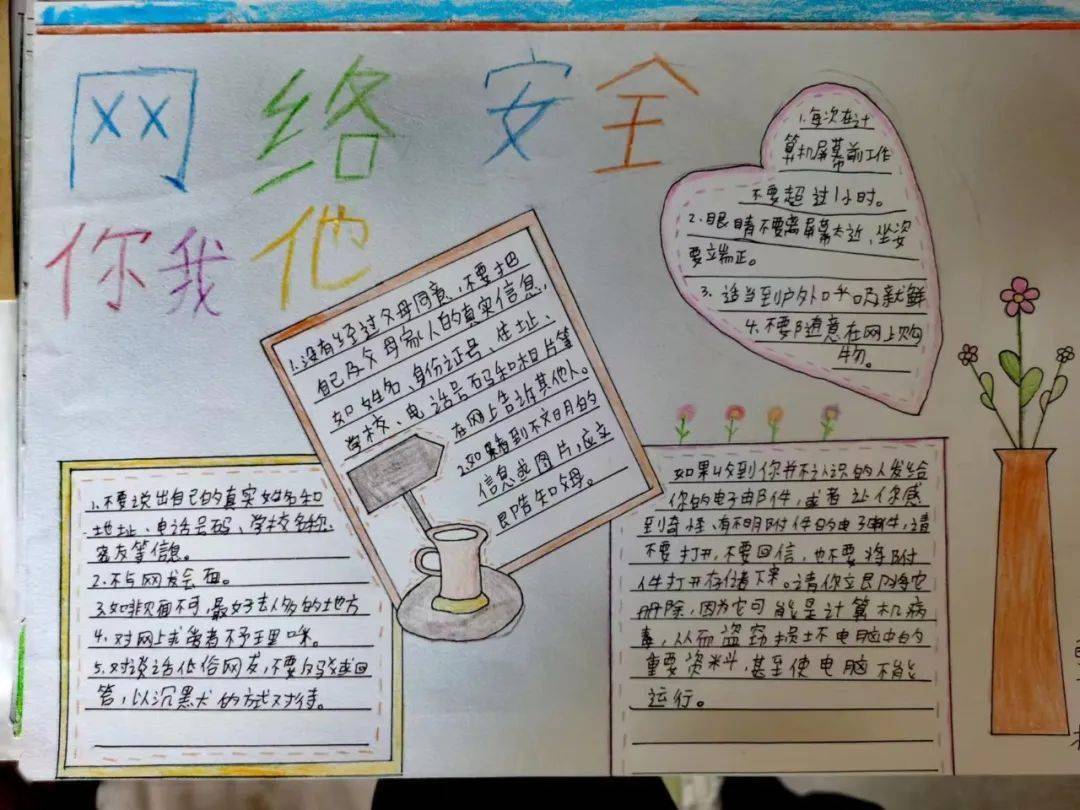 网络安全
你我他
1.每次在计
算机屏幕前工作
不要超过1小时。
2.眼睛不要离屏幕太近，坐姿
要端正。
3.适当到户外呼吸新鲜
4.不要随意在网上购
物。
1.没有经过父母同意，不要把
自己及父母家人的真实信息，
如姓名、身份证号、住址、
学校、电话号码和相片等
在网上告诉其他人。
2.如果看到不文明的
信息或图片，应立
即告知母。
1.不要说出自己的真实姓名和
地址、电话号码、学校名称、
密友等信息。
2.不与网友会面。
3.如非见面不可，最好去人多的地方
4.对网上求爱者不予理睬。
5.对说话低俗网友，不要反驳或回
答，以沉默的方式对待。
如果收到你并不认识的人发给
你的电子邮件，或者让你感
到奇怪、有不明附件的电子邮件，请
不要打开，不要回信，也不要将附
件打开存储下来。请你立即将它
删除，因为它可能是计算机病
毒，从而盗窃损坏电脑中的
重要资料，甚至使电脑不能
运行。